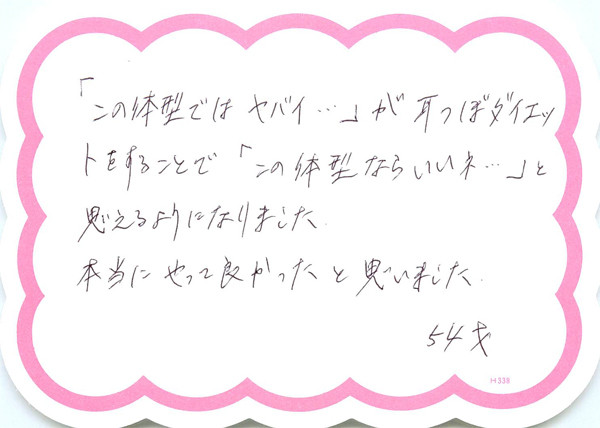 「この体型では ヤバイ…」が 耳つぼダイエッ
トをすることで「この体型ならいいネ…」と
思えるようになりました.
本当に やって良かったと思いました.
54才
H338